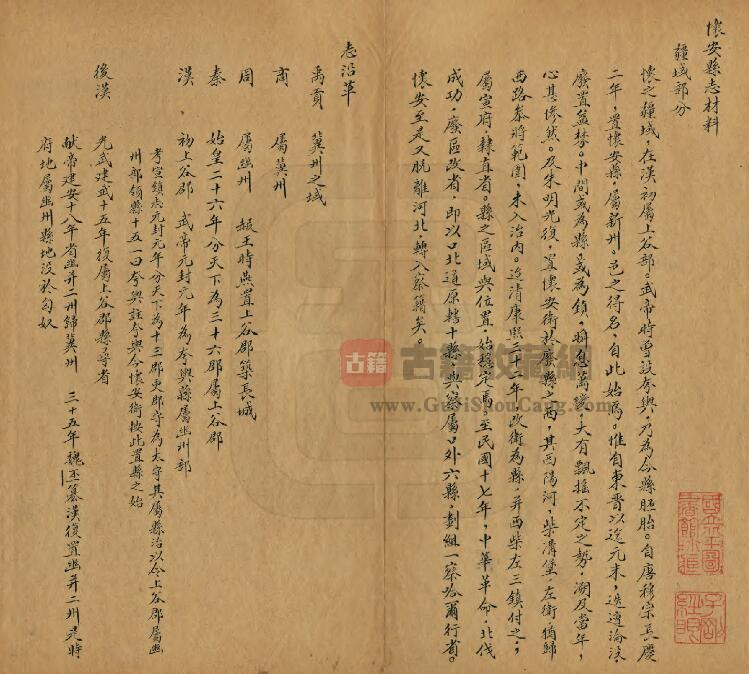 懷安縣志材料
疆域部分
懷之疆域，在漢初屬上谷部。武帝時曾設夸輿，乃為今縣胚胎。自唐穆宗長慶
二年，置懷安縣，屬新州。邑之得名，自此始焉。惟自東晋以迄元末，迭遭淪沒，
廢置益棼。中間或為縣，或為鎮，稍息蕭條，大有飄搖不定之勢，溯及當年，
心甚慘然。及朱明光復，置懷安衛於廢縣之西，其西陽河，柴溝堡，左衛猶歸
西路叅將範圍，未入治內。迨清康熙三十二年，改衛為縣，并西柴左三鎮付之，
屬宣府，隸直省。縣之區域與位置，始穩定焉。至民國十七年，中華革命，北伐
成功，廢區改省，即以口北道原轄十縣，與察屬口外六縣，劃組一察哈爾行省。
懷安至是又脫離河北，轉入察籍矣。
志沿革
禹貢 冀州之域
商 屬冀州
周 屬幽州 赧王時燕置上谷郡築長城
秦 始皇二十六年分天下為三十六郡屬上谷郡
漢 初上谷郡 武帝元封元年為夸輿縣屬幽州部
考宣鎮志元封元年分天下為十三部更郡守為太守其屬縣治以今上谷郡屬幽
州部領縣十五一曰夸輿註夸輿今懷安衛按此置縣之始
後漢 光武建武十五年復屬上谷郡縣尋省
献帝建安十八年省幽并二州歸冀州 二十五年魏丕篡漢復置幽并二州是時
府地屬幽州縣地沒於匈奴
古籍
古籍收藏網
www.GuJiShouCang.com